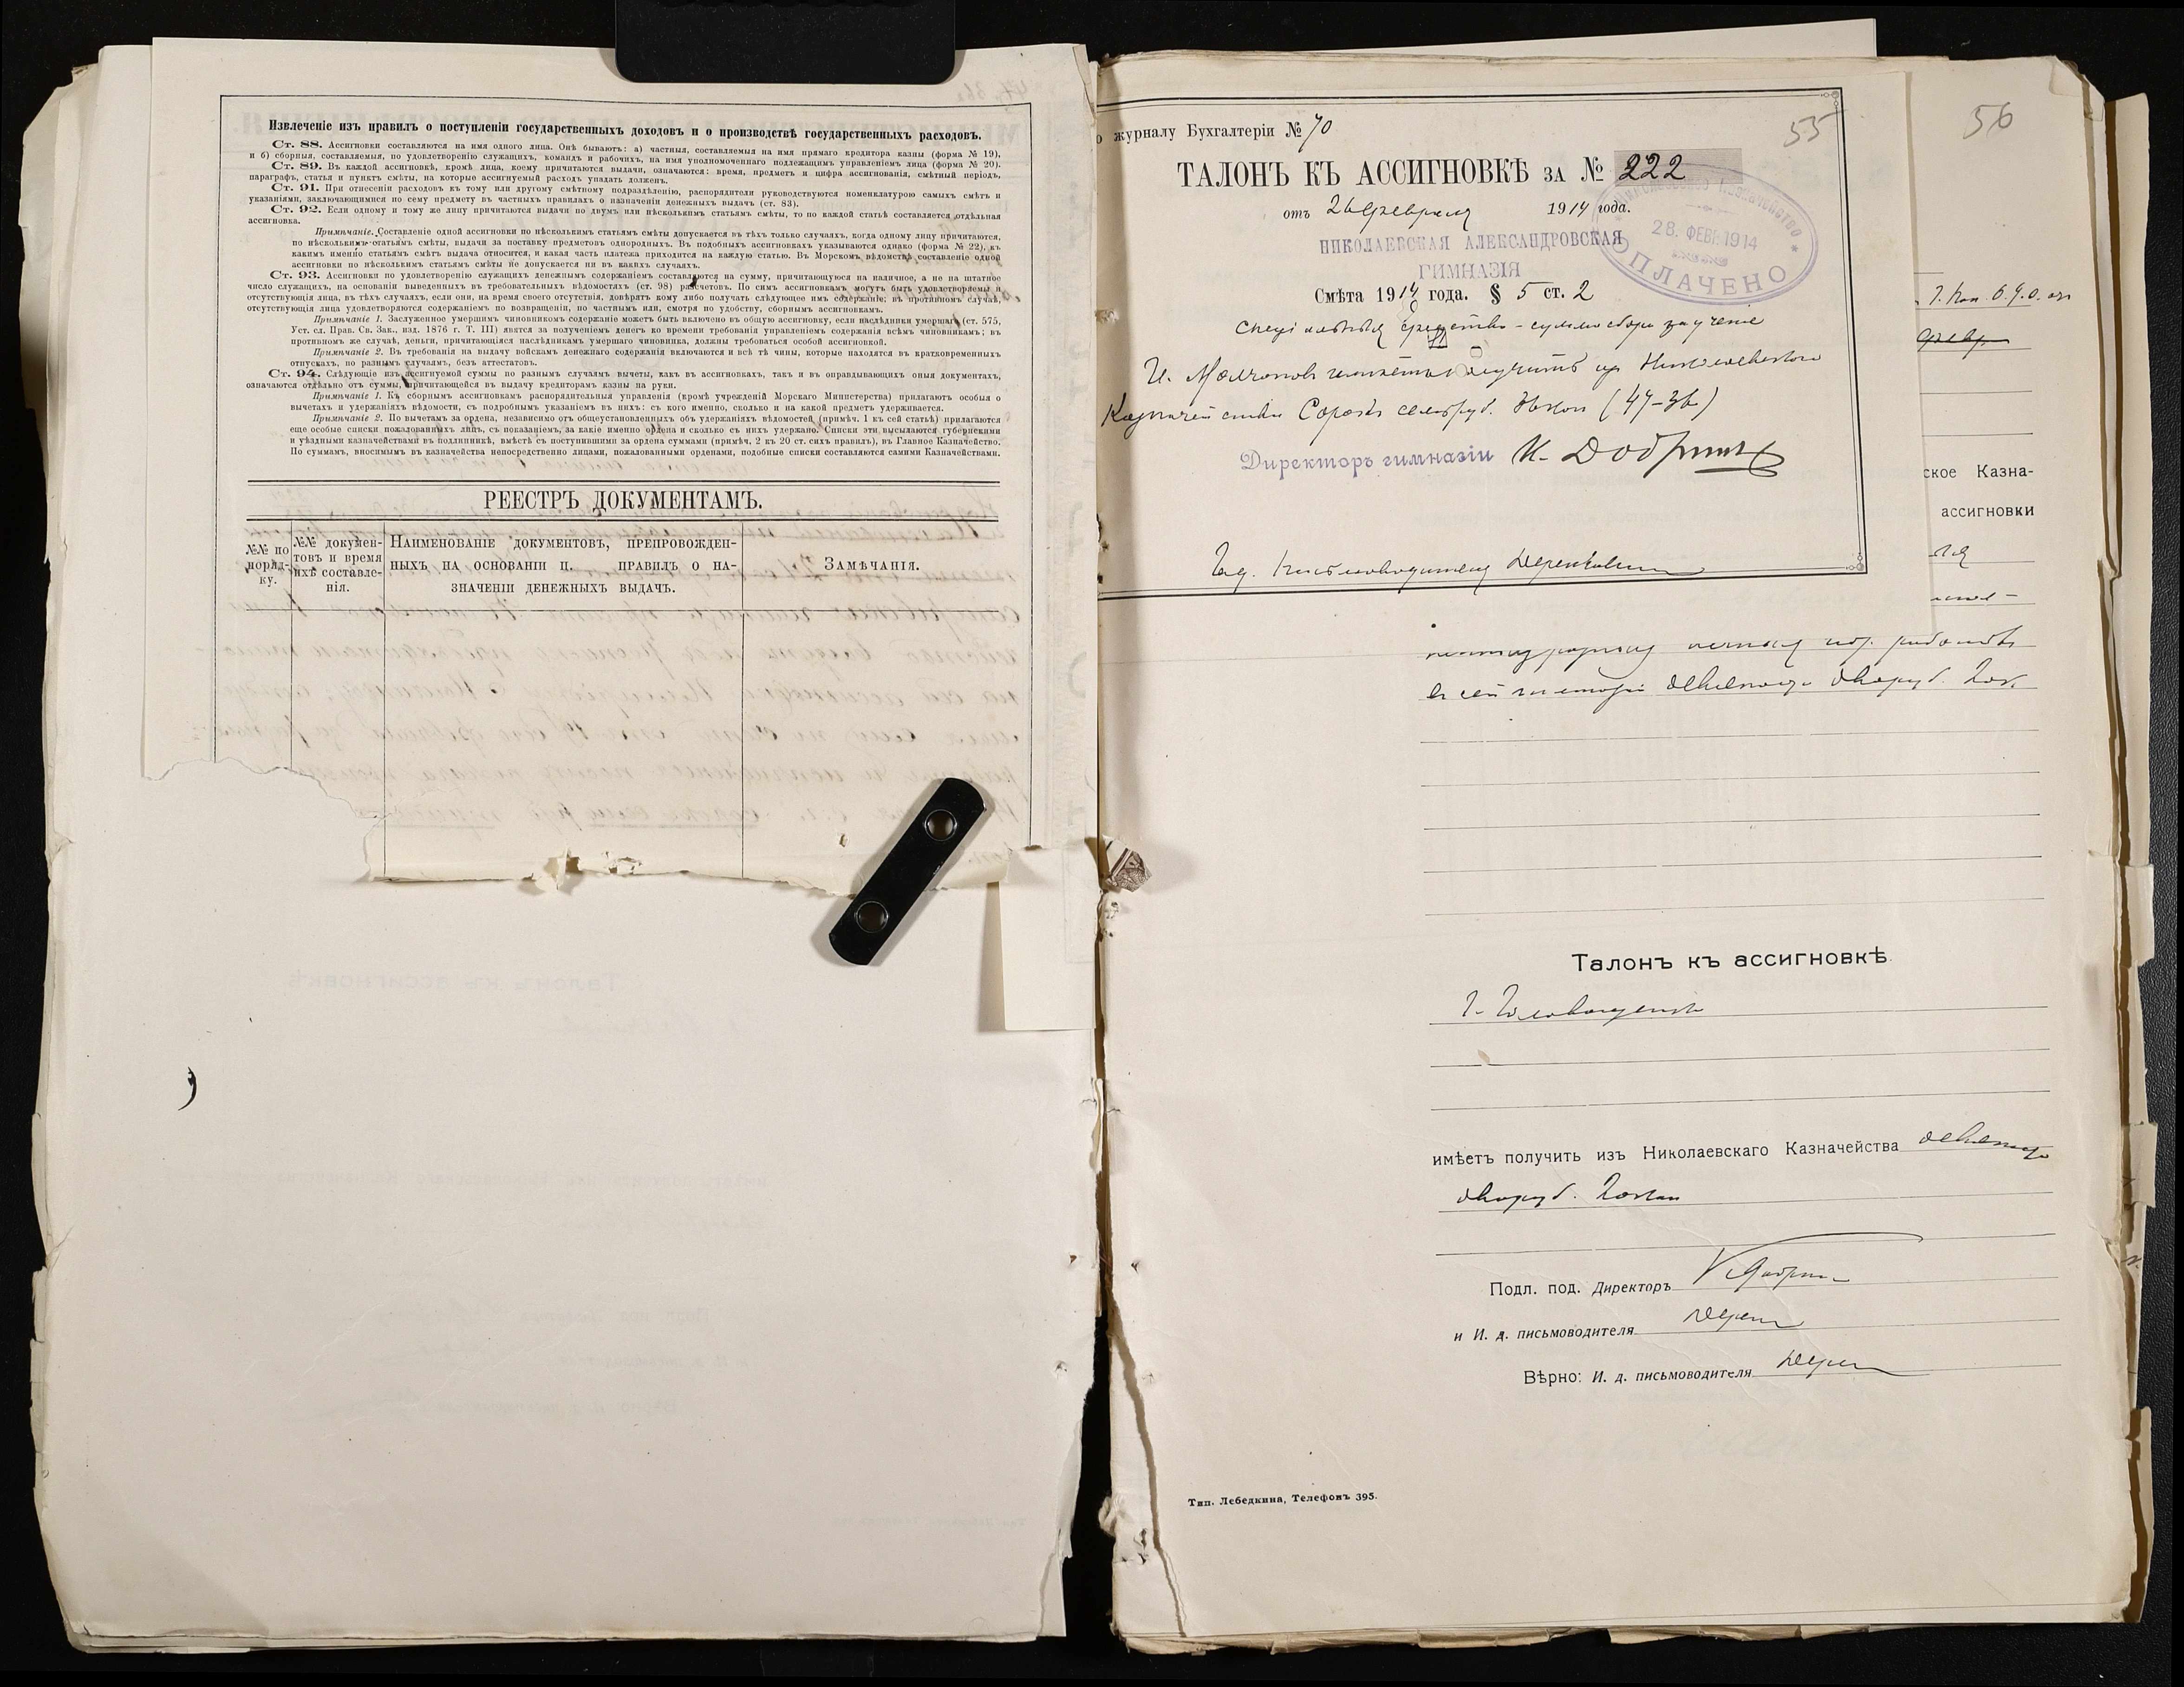 Извлеченіе изъ правилъ о поступленіи государственныхъ доходовъ и о производствѣ государственныхъ расходовъ.
Ст. 88. Ассигновки составляются на имя одного лица. Онѣ бываютъ: а) частныя, составляемыя на имя прямаго кредитора казны (форма № 19),
и б) сборныя, составляемыя, по удовлетворенію служащихъ, командъ и рабочихъ, на имя уполномоченнаго подлежащимъ управленіемъ лица (форма № 20).
Ст. 89. Въ каждой ассигновкѣ, кромѣ лица, коему причитаются выдачи, означаются: время, предметъ и цифра ассигнованія, смѣтный періодъ,
параграфъ, статья и пунктъ смѣты, на которые ассигнуемый расходъ упадать долженъ.
Ст. 91. При отнесеніи расходовъ къ тому или другому смѣтному подраздѣленію, распорядители руководствуются номенклатурою самыхъ смѣтъ и
указаніями, заключающимися по сему предмету въ частныхъ правилахъ о назначеніи денежныхъ выдачъ (ст. 83).
Ст. 92. Если одному и тому же лицу причитаются выдачи по двумъ или нѣсколькимъ статьямъ смѣты, то по каждой статьѣ составляется отдѣльная
ассигновка.
Примѣчаніе. Составленіе одной ассигновки по нѣсколькимъ статьямъ смѣты допускается въ тѣхъ только случаяхъ, когда одному лицу причитаются,
по нѣсколькимъ статьямъ смѣты, выдачи за поставку предметовъ однородныхъ. Въ подобныхъ ассигновкахъ указываются однако (форма № 22), къ
какимъ именно статьямъ смѣтъ выдача относится, и какая часть платежа приходится на каждую статью. Въ Морскомъ вѣдомствѣ составленіе одной
ассигновки по нѣсколькимъ статьямъ смѣты не допускается ни въ какихъ случаяхъ.
Ст. 93. Ассигновки по удовлетворенію служащихъ денежнымъ содержаніемъ составляются на сумму, причитающуюся на наличное, а не на штатное
число служащихъ, на основаніи выведенныхъ въ требовательныхъ вѣдомостяхъ (ст. 98) разсчетовъ. По симъ ассигновкамъ могутъ быть удовлетворяемы и
отсутствующія лица, въ тѣхъ случаяхъ, если они, на время своего отсутствія, довѣрятъ кому либо получать слѣдующее имъ содержаніе; въ противномъ случаѣ,
отсутствующія лица удовлетворяются содержаніемъ по возвращеніи, по частнымъ или, смотря по удобству, сборнымъ ассигновкамъ.
Примѣчаніе 1. Заслуженное умершимъ чиновникомъ содержаніе можетъ быть включено въ общую ассигновку, если наслѣдники умершаго (ст. 575,
Уст. сл. Прав. Св. Зак., изд. 1876 г. Т. III) явятся за полученіемъ денегъ ко времени требованія управленіемъ содержанія всѣмъ чиновникамъ; въ
противномъ же случаѣ, деньги, причитающіяся наслѣдникамъ умершаго чиновника, должны требоваться особой ассигновкой.
Примѣчаніе 2. Въ требованія на выдачу войскамъ денежнаго содержанія включаются и всѣ тѣ чины, которые находятся въ кратковременныхъ
отпускахъ, по разнымъ случаямъ, безъ аттестатовъ.
Ст. 94. Слѣдующіе изъ ассигнуемой суммы по разнымъ случаямъ вычеты, какъ въ ассигновкахъ, такъ и въ оправдывающихъ оныя документахъ,
означаются отдѣльно отъ суммы, причитающейся въ выдачу кредиторамъ казны на руки.
Примѣчаніе 1. Къ сборнымъ ассигновкамъ распорядительныя управленія (кромѣ учрежденій Морскаго Министерства) прилагаютъ особыя о
вычетахъ и удержаніяхъ вѣдомости, съ подробнымъ указаніемъ въ нихъ: съ кого именно, сколько и на какой предметъ удерживается.
Примѣчаніе 2. По вычетамъ за ордена, независимо отъ общеустановленныхъ объ удержаніяхъ вѣдомостей (примѣч. 1 къ сей статьѣ) прилагаются
еще особые списки пожалованныхъ лицъ, съ показаніемъ, за какіе именно ордена и сколько съ нихъ удержано. Списки эти высылаются губернскими
и уѣздными казначействами въ подлинникѣ, вмѣстѣ съ поступившими за ордена суммами (примѣч. 2 къ 20 ст. сихъ правилъ), въ Главное Казначейство.
По суммамъ, вносимымъ въ казначейства непосредственно лицами, пожалованными орденами, подобные списки составляются самими Казначействами.
РЕЕСТРЪ ДОКУМЕНТАМЪ.
№№ по поряд-ку.
№№ докумен-товъ и время ихъ составле-нія.
Наименованіе документовъ, препровожден-ныхъ на основаніи п. правилъ о на-значеніи денежныхъ выдачъ.
Замѣчанія.
журналу Бухгалтеріи № 70
55
56
ТАЛОНЪ КЪ АССИГНОВКѢ за № 222
отъ 26 февраля 1914 года.
28. ФЕВ. 1914
ОПЛАЧЕНО
НИКОЛАЕВСКАЯ АЛЕКСАНДРОВСКАЯ
ГИМНАЗІЯ
Смѣта 1914 года. § 5 ст. 2
спеціальныя средства - суммы сбора за ученіе
имѣетъ получить изъ Николаевскаго
Казначейства Сорокъ семь руб. 36 коп (47-36)
Директоръ гимназіи
ское Казна-
ассигновки
Талонъ къ ассигновкѣ
имѣетъ получить изъ Николаевскаго Казначейства
Подл. под. Директоръ
и И. д. письмоводителя
Вѣрно: И. д. письмоводителя
Тип. Лебедкина, Телефонъ 395.